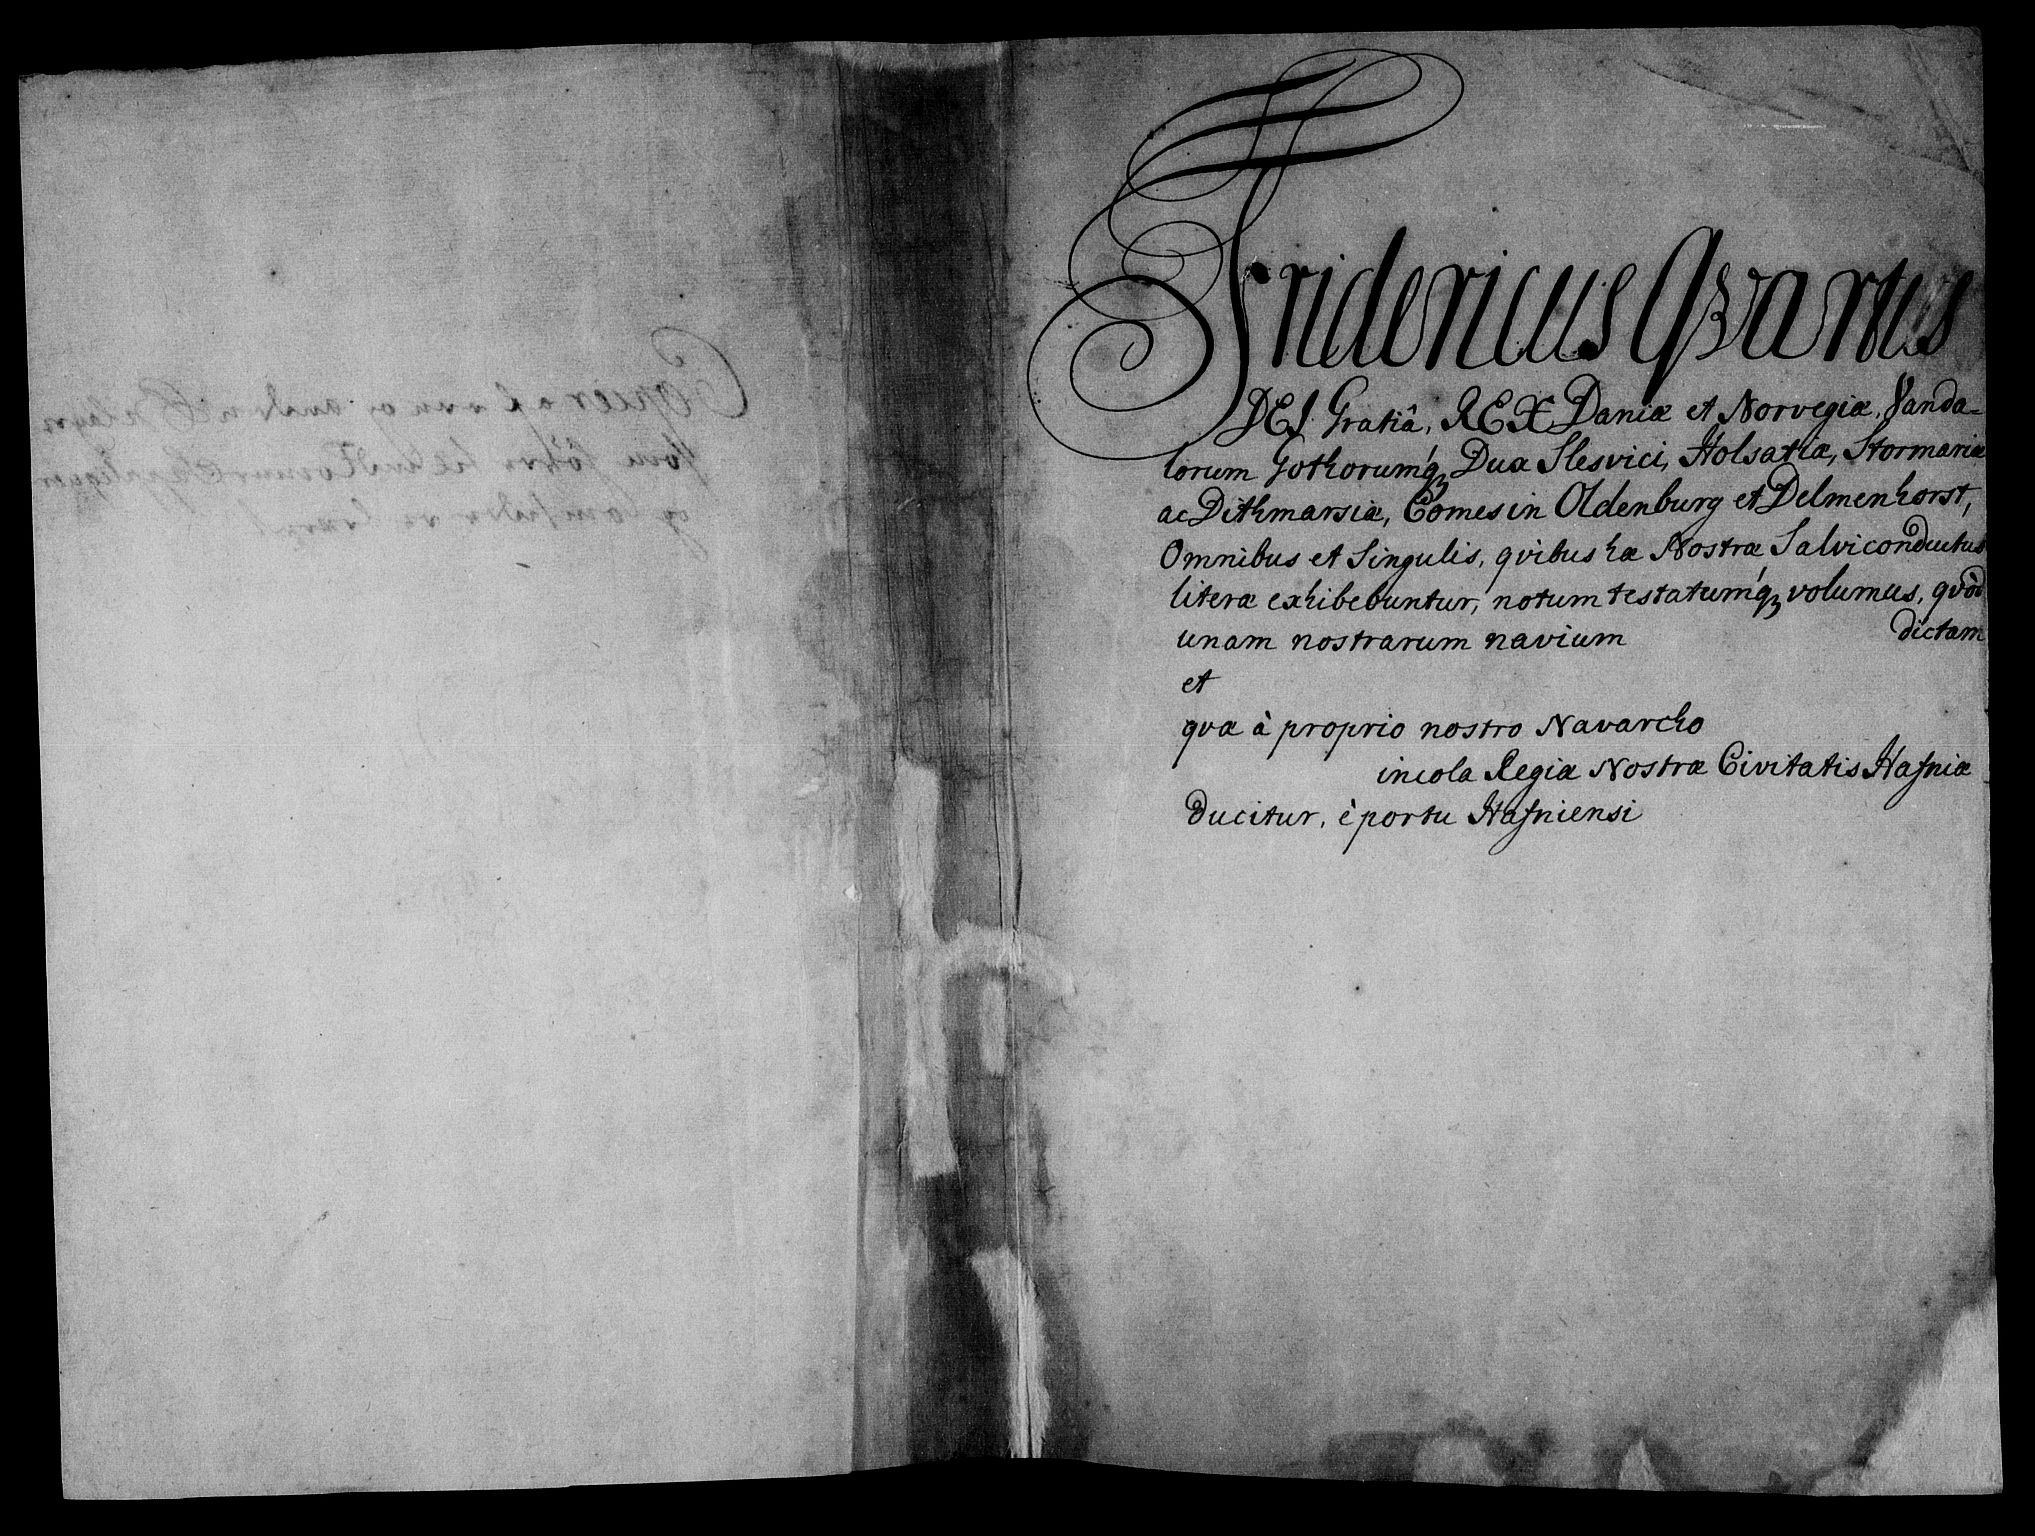 Fridericus Qvartus
DEI Gratiâ, REX Daniæ et Norvegiæ, Vanda-
lorum Gothorumq́ꝫ Dux Slesvici, Holsatiæ, Stormariæ
ac Dithmarsiæ, Comes in Oldenburg et Delmenhorst,
Omnibus et Singulis, qvibus hæ Nostræ Salvi conductus
literæ exhibebuntur, notum testatumq́ꝫ volumus, qvòd
unam nostrarum navium dictam
et
qvæ à proprio nostro Navarcho
incola Regiæ Nostræ Civitatis Hafniæ
ducitur, è portu Hafniensi